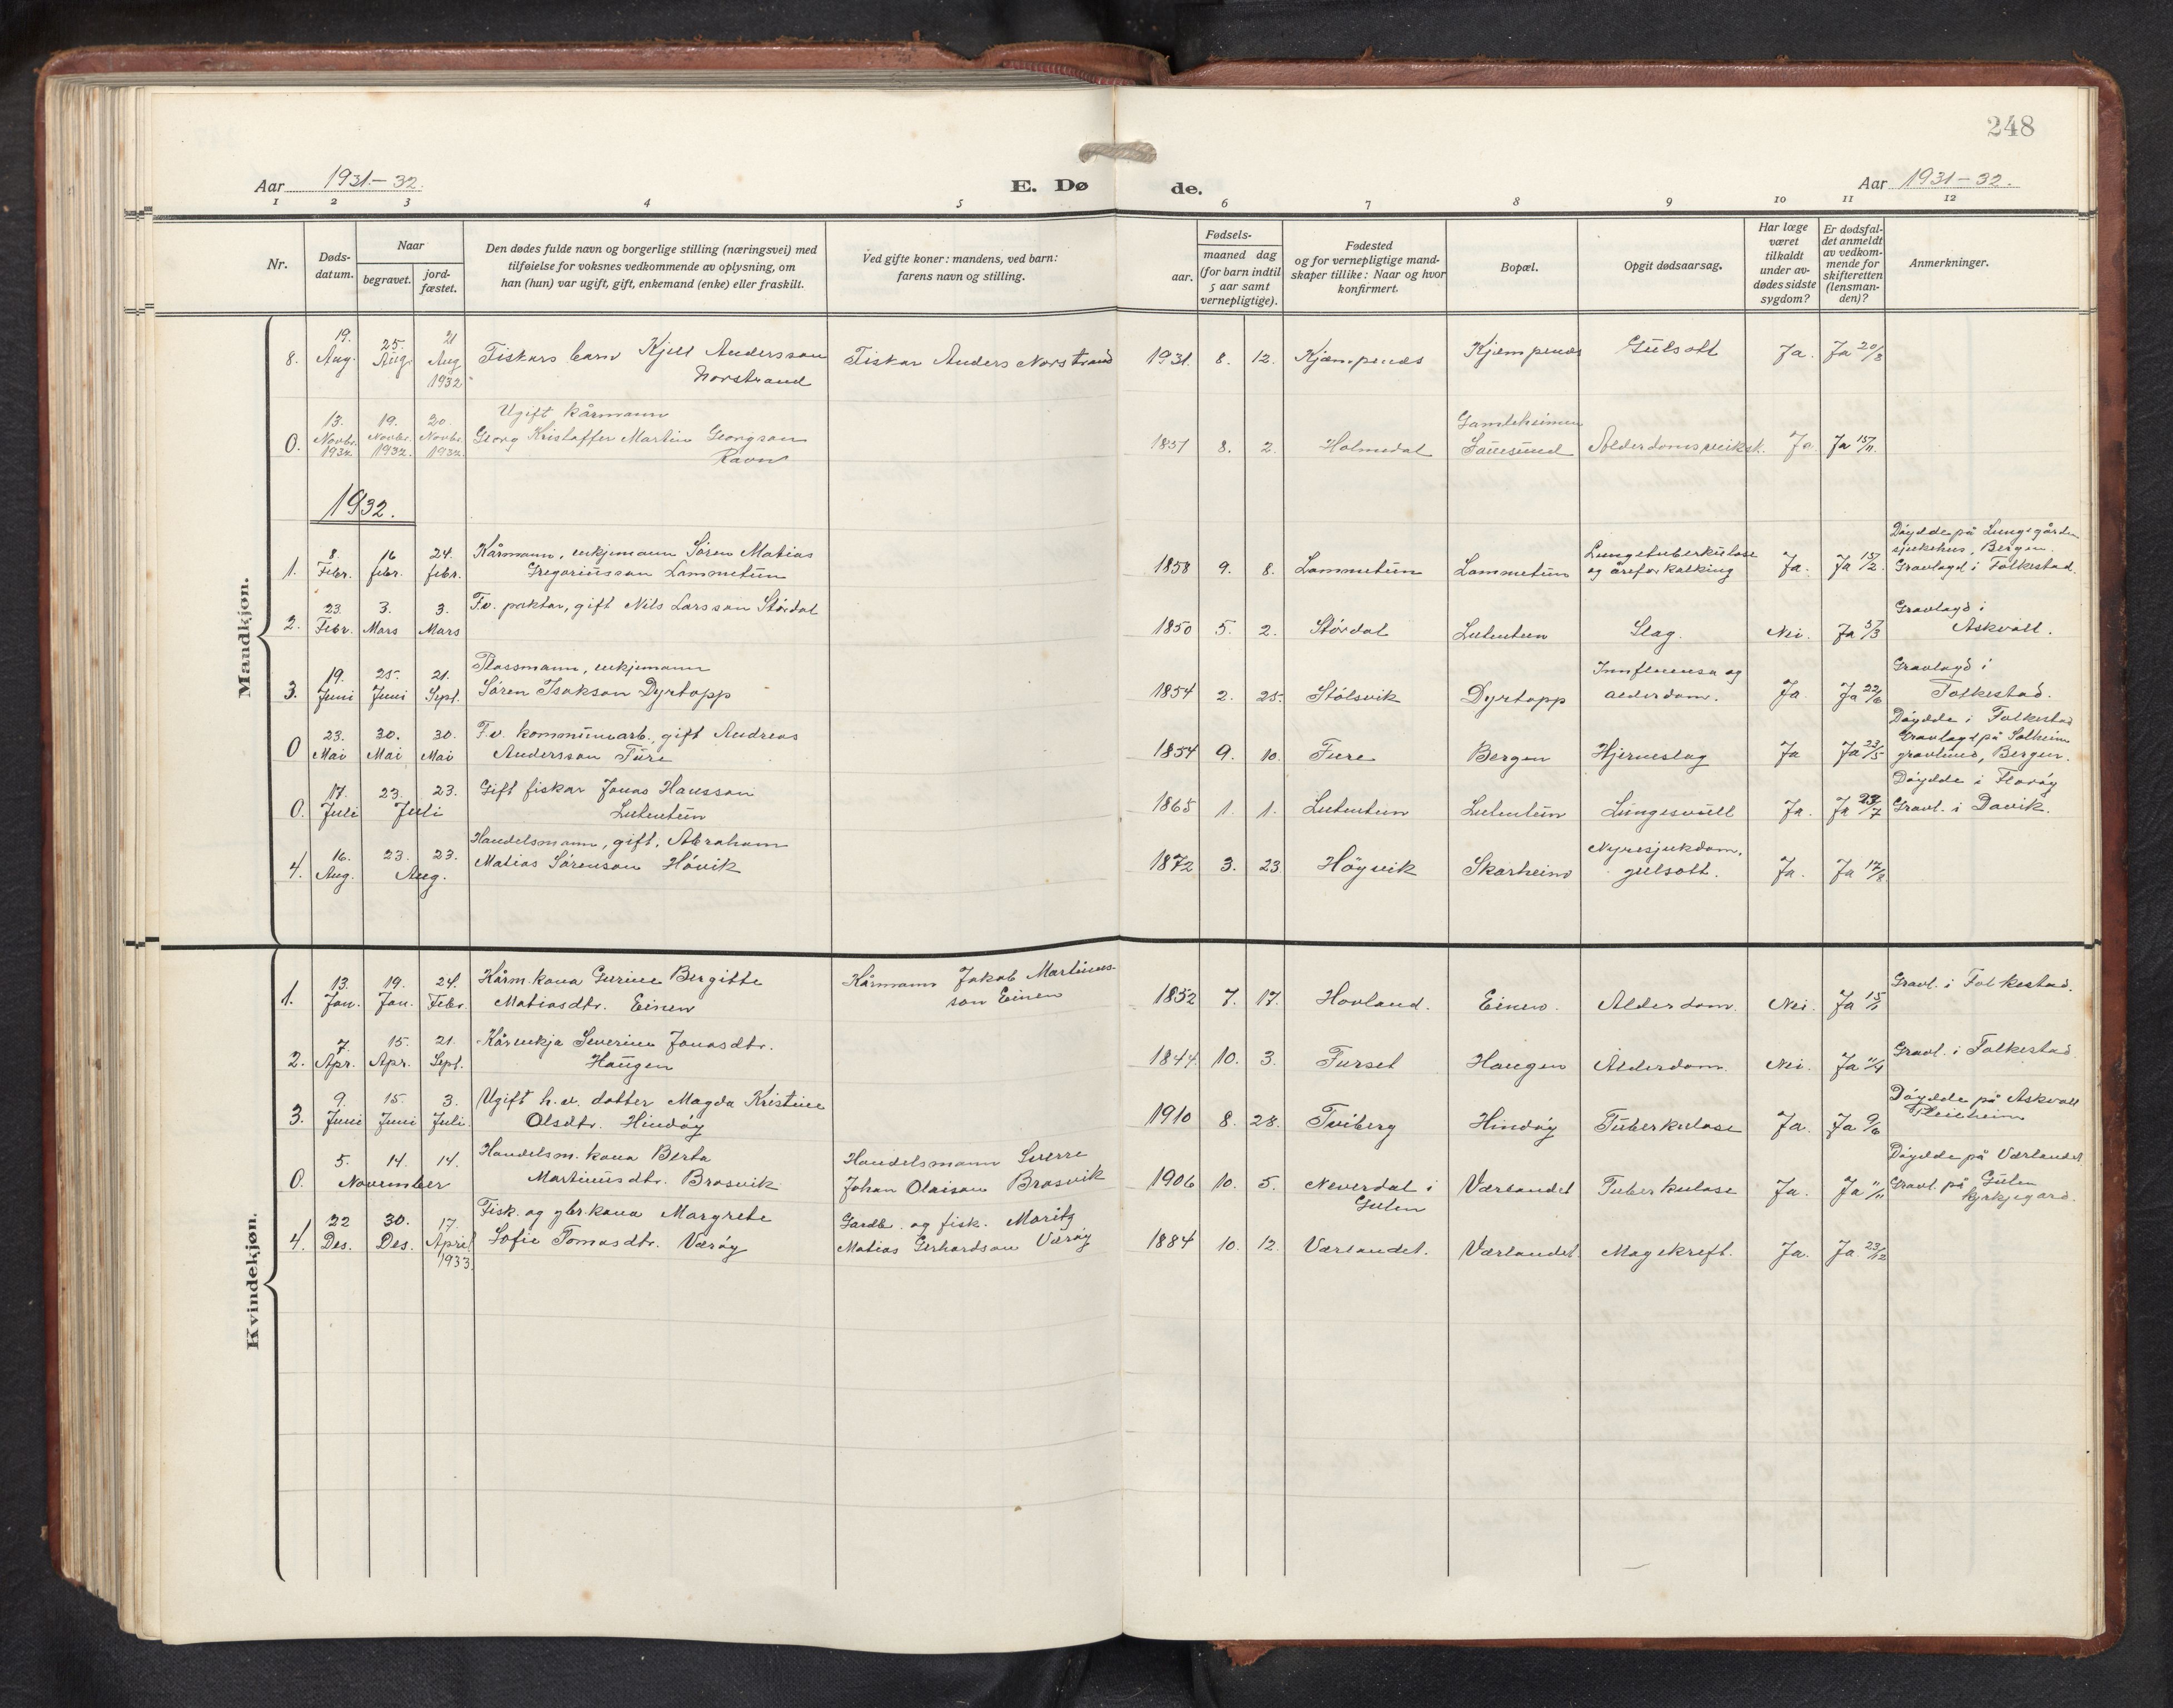 248
Aar 1931-32. E. Dø de. Aar 1931-32.
1 2 3 4 5 6 7 8 9 10 11 12
Nr.
Døds-
datum.
Naar
begravet.
jord-
fæstet.
Den dødes fulde navn og borgerlige stilling (næringsvei) med
tilføielse for voksnes vedkommende av oplysning, om
han (hun) var ugift, gift, enkemand (enke) eller fraskilt.
Ved gifte koner: mandens, ved barn:
farens navn og stilling.
Fødsels-
aar.
maaned dag
(for barn indtil
5 aar samt
vernepligtige).
Fødested
og for vernepligtige mand-
skaper tillike: Naar og hvor
konfirmert.
Bopæl.
Opgit dødsaarsag.
Har læge
været
tilkaldt
under av-
dødes sidste
sygdom?
Er dødsfal-
det anmeldt
av vedkom-
mende for
skifteretten
(lensman-
den)?
Anmerkninger.
Mandkjøn.
8. 19. Aug. 25. Aug. 21 Aug 1932 Fiskars barn Kjell Andersson
Norstrand
Fiskar Anders Norstrand 1931. 8. 12. Kjempenes Kjempenes Gulsott Ja. Ja 20/8
0. 13. Novbr. 1932. 19. Novbr. 1932. 20. Novbr. 1932. Ugift kårmann
Georg Kristoffer Martin Georgson
Ravn
1851 8. 2. Holmedal Gamleheimen
Sauesund Alderdomssveiksk. Ja. Ja 15/11.
1932.
1. 8. Febr. 16 febr. 24. febr. Kårmann, enkjemann Søren Matias
Gregoriusson Lammetun
1858 9. 8. Lammetun Lammetun Lungetuberkulose
og åreforkalking Ja. Ja 15/2. Døydde på Lungegården
sjukehus, Bergen.
Gravlagd i Folkestad.
2. 23. Febr. 3. Mars 3. Mars F.v. paktar, gift Nils Larsson Stórdal
1850 5. 2. Stórdal Lutentun Slag. Nei. Ja 5/3 Gravlagd i
Askvoll.
3. 19. Juni 25. Juni 21. Sept. Plassmann, enkjemann
Søren Isakson Dyrtopp
1854 2. 25. Stólsvik Dyrtopp Innfluensa og
alderdom. Ja. Ja 22/6 Gravlagd i
Folkestad.
0 23. Mai 30. Mai 30. Mai F.v. kommunearb., gift Andreas
Andersson Fure
1854 9. 10. Fure Bergen Hjerneslag Ja Ja 23/5 Døydde i Folkestad
Gravlagd på Solheim
gravlund, Bergen.
0. 17. Juli 23. 23. Juli Gift fiskar Jonas Hansson
Lutentun
1865 1. 1. Lutentun Lutentun Lungesvull Ja. Ja 23/7 Døydde i Florøy
Gravl. i Davik.
4. 16. Aug. 23. 23. Aug. Handelsmann, gift, Abraham
Matias Sørenson Høvik
1872 3. 23 Höyvik Skarheim Nyresjukdom,
gulsott. Ja. Ja 17/8
Kvindekjøn.
1. 13. Jan. 19. Jan. 24. Febr. Kårm.kona Gurine Bergitte
Matiasdtr. Einen
Kårmann Jakob Martinus-
son Einen 1852 7. 17. Hovland. Einen. Alderdom. Nei. Ja 15/1 Gravl. i Folkestad.
2. 7. Apr. 15. Apr. 21. Sept. Kårenkja Severine Jonasdtr.
Haugen
1844. 10. 3. Furset Haugen Alderdom. Nei. Ja 11/4 Gravl. i Folkestad.
3. 9. Juni 15. Juni 3. Juli. Ugift h.v. dotter Magda Kristine
Olsdtr. Hindøy
1910 8. 28. Tviberg Hindøy Tuberkulose Ja. Ja 9/6 Døydde på Askvoll
Pleieheim
0. 5. 14. 14. November Handelsm.kona Berta
Martinusdtr. Brosvik
Handelsmann Sverre
Johan Olaison Brosvik 1906 10. 5. Neverdal i
Gulen Værlandet Tuberkulose Ja. Ja 11/11 Døydde på Værlandet.
Gravl. på Gulen
kyrkjegard.
4. 22 Des. 30. Des. 17. April 1933. Fisk. og gbr.kona Margrete
Sofie Tomasdtr. Værøy
Gardbr. og fisk. Moritz
Matias Gerhardson Værøy 1884 10. 12. Værlandet. Værlandet Magekreft. Ja. Ja. 23/12